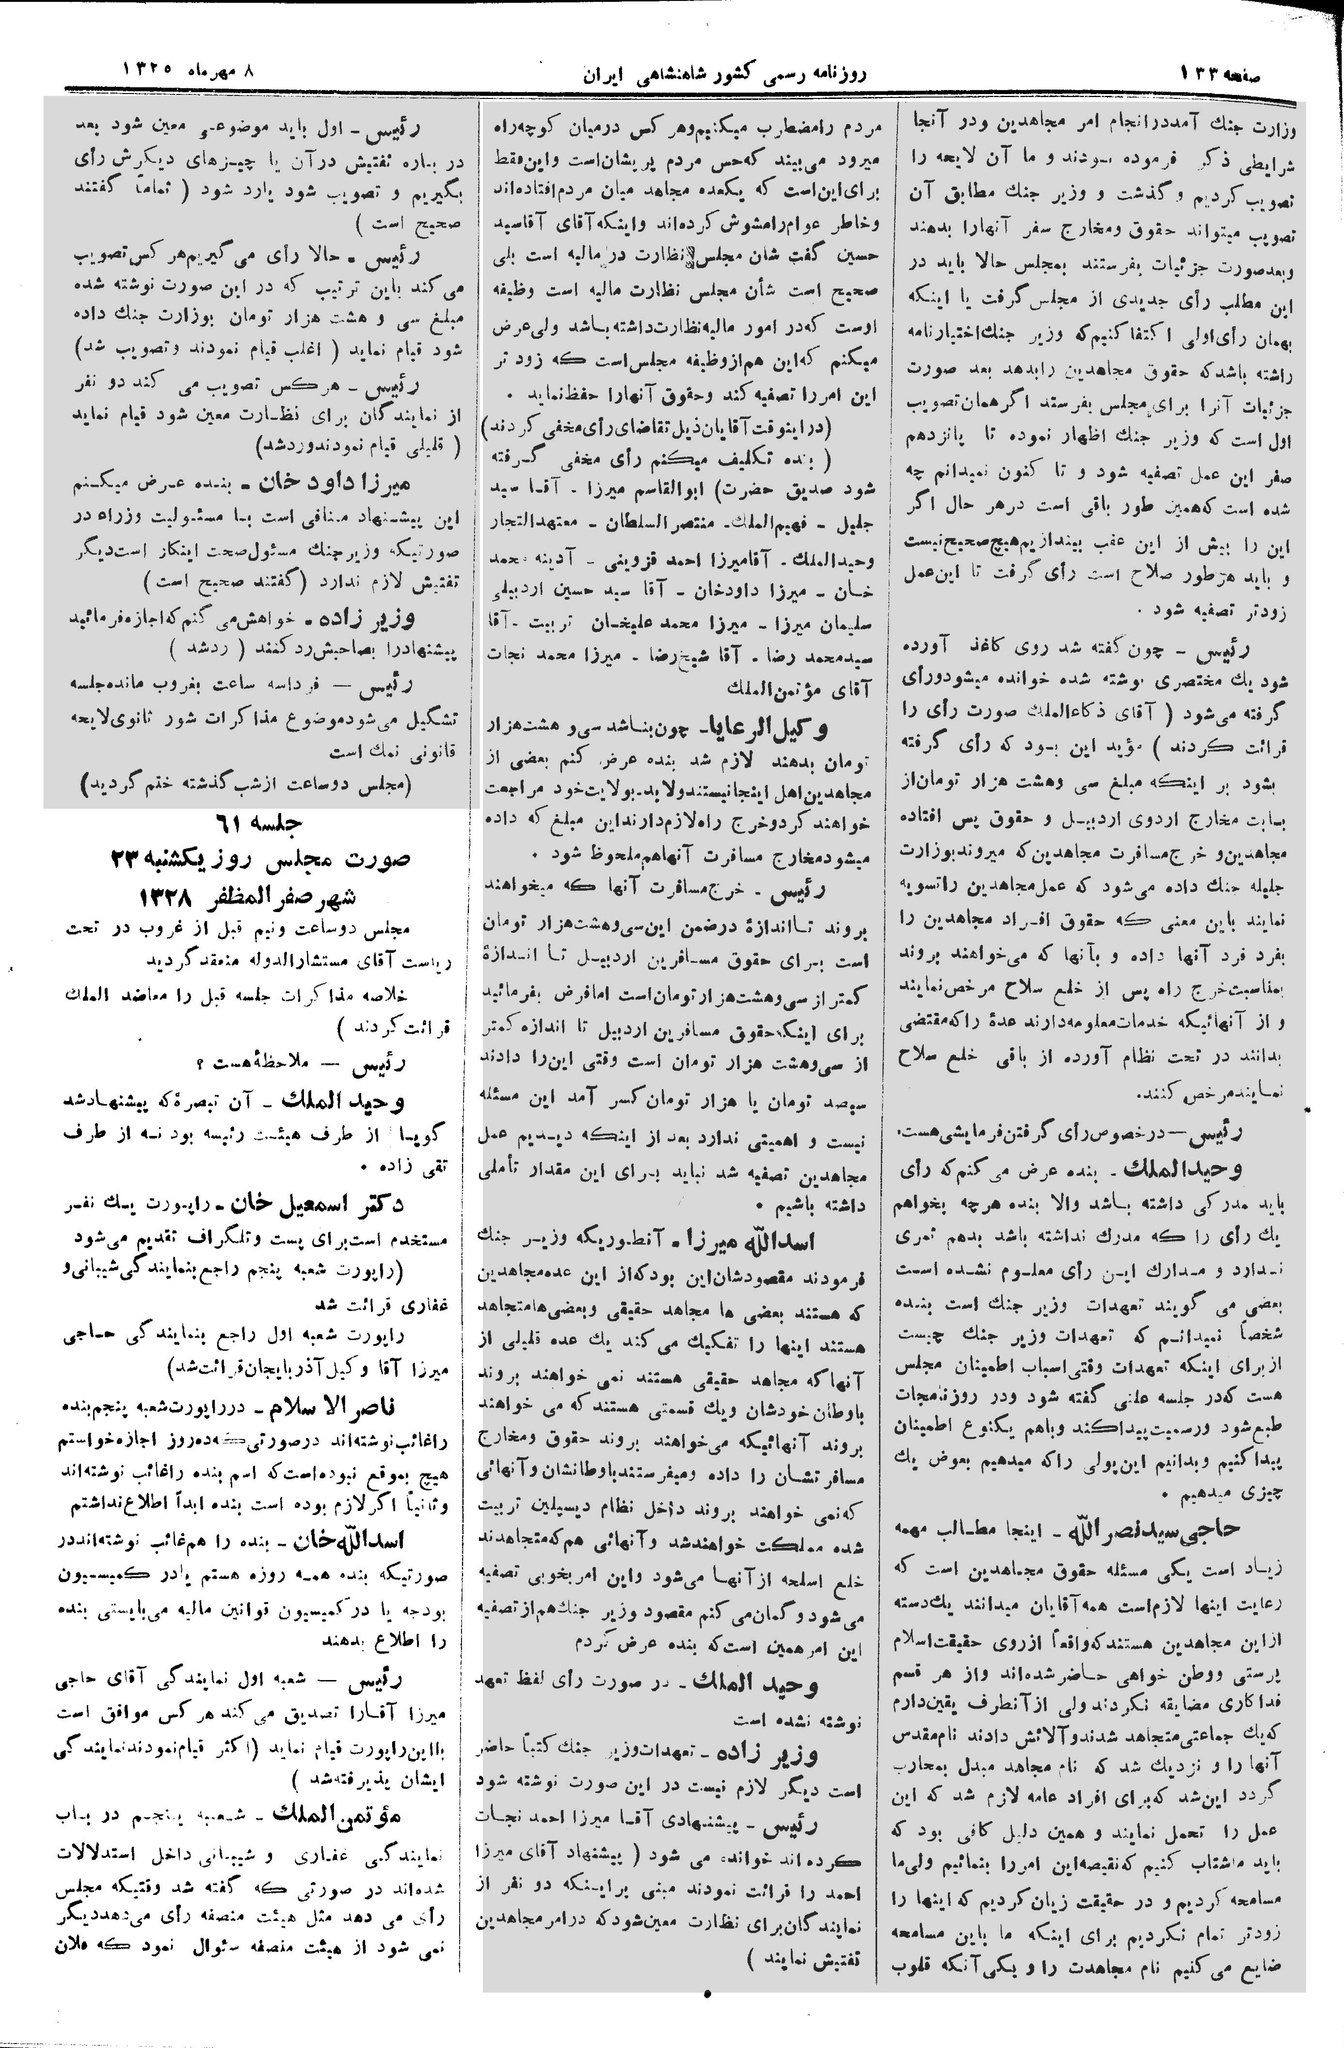 صفحه ۱۳۳
روزنامه رسمی کشور شاهنشاهی ایران
۸ مهرماه ۱۳۲۵
وزارت جنك آمددرانجام امر مجاهدین ودر آنجا
شرایطی ذکر فرموده بودند و ما آن لایحه را
تصویب کردیم و گذشت و وزیر جنك مطابق آن
تصویب میتواند حقوق ومخارج سفر آنهارا بدهند
وبعدصورت جزئیات بفرستند بمجلس حالا باید در
این مطلب رأی جدیدی از مجلس گرفت یا اینکه
بهمان رأی‌اولی اکتفا کنیم‌که وزیر جنك‌اختیارنامه
راشته باشدکه حقوق مجاهدین رابدهد بعد صورت
جزئیات آنرا برای‌مجلس بفرستد اگرهمان‌تصویب
اول است که وزیر جنك اظهار نموده تا پانزدهم
صفر این عمل تصفیه شود و تا کنون نمیدانم چه
شده است‌که‌همین طور باقی است درهر حال اگر
این را بیش از این عقب بیندازیم‌هیچ‌صحیح‌نیست
و باید هرطور صلاح است رأی گرفت تا این‌عمل
زودتر تصفیه شود ۰
رئیس - چون گفته شد روی کاغذ آورده
شود یك مختصری نوشته شده خوانده میشودورأی
گرفته می‌شود ( آقای ذکاءالملك صورت رأی را
قرائت کردند ) مؤید این بود که رأی گرفته
بشود بر اینکه مبلغ سی وهشت هزار تومان‌از
بابت مخارج اردوی اردبیل و حقوق پس افتاده
مجاهدین‌و خرج‌مسافرت مجاهدین‌که میروندبوزارت
جلیله جنك داده می‌شود که عمل‌مجاهدین راتسویه
نمایند باین معنی که حقوق افراد مجاهدین را
بفرد فرد آنها داده و بآنها که می‌خواهند بروند
بمناسبت‌خرج راه پس از خلع سلاح مرخص‌نمایند
و از آنهائیکه خدمات‌معلومه‌دارند عدهٔ راکه‌مقتضی
بدانند در تحت نظام آورده از باقی خلع سلاح
نمایندمرخص‌کنند.
رئیس — درخصوص‌رأی گرفتن‌فرمایشی‌هست.
وحیدالملك - بنده عرض می‌کنم‌که رأی
باید مدرکی داشته باشد والا بنده هرچه بخواهم
یك رأی را که مدرك نداشته باشد بدهم ثمری
ندارد و مدارك این رأی معلوم نشده است
بعضی می گویند تعهدات وزیر جنك است بنده
شخصاً نمیدانم که تعهدات وزیر جنك چیست
ازبرای اینکه تعهدات وقتی‌اسباب اطمینان مجلس
هست که‌در جلسه علنی گفته شود ودر روزنامجات
طبع‌شود ورسمیت‌پیداکند وباهم یکنوع اطمینان
پیداکنیم وبدانیم این‌پولی راکه میدهیم بعوض یك
چیزی میدهیم ۰
حاجی‌سیدنصرالله - اینجا مطالب مهمه
زیاد است یکی مسئله حقوق مجاهدین است که
رعایت اینها لازم‌است همه‌آقایان میدانند یك‌دسته
ازاین مجاهدین هستندکه‌واقعاً ازروی حقیقت‌اسلام
پرستی ووطن خواهی حاضرشده‌اند واز هر قسم
فداکاری مضایقه نکردندولی ازآنطرف یقین‌دارم
که‌یك جماعتی‌متجاهد شدندوآلائش دادند نام‌مقدس
آنها را و نزدیك شد که نام مجاهد مبدل بمحارب
گردد این‌شد که‌برای افراد عامه لازم شد که این
عمل را تحمل نمایند و همین دلیل کافی بود که
باید ماشتاب کنیم که‌نقیصه‌این امررا بنمائیم ولی‌ما
مسامحه کردیم‌و در حقیقت زیان کردیم که اینها را
زودتر تمام نکردیم برای اینکه ما باین مسامحه
ضایع می‌کنیم نام مجاهدت را و یکی‌آنکه قلوب
مردم رامضطرب میکنیم‌وهرکس درمیان کوچه‌راه
میرود می‌بیند که‌حس مردم پریشان‌است واین‌فقط
برای‌این‌است که یکعده مجاهد میان مردم‌افتاده‌اند
وخاطر عوام‌رامشوش کرده‌اند واینکه‌آقای آقاسید
حسین گفت شان مجلس نظارت در مالیه است بلی
صحیح است شأن مجلس نظارت مالیه است وظیفه
اوست که‌در امور مالیه‌نظارت‌داشته‌باشد ولی‌عرض
میکنم که‌این هم‌ازوظیفه مجلس‌است که زود تر
این امررا تصفیه کند وحقوق آنهارا حفظ‌نماید ۰
(دراینوقت‌آقایان‌ذیل‌تقاضای‌رأی‌مخفی‌کردند)
( بنده تکلیف میکنم رأی مخفی گرفته
شود صدیق حضرت) ابوالقاسم میرزا - آقا سید
جلیل - فهیم‌الملك- منتصرالسلطان - معتهدالتجار
وحیدالملك- آقامیرزا احمد قزوینی - آدینه محمد
خان - میرزا داودخان - آقا سید حسین اردبیلی
سلیمان میرزا - میرزا محمد علیخان تربیت -آقا
سیدمحمد رضا - آقا شیخ‌رضا - میرزا محمد نجات
آقای مؤتمن‌الملك
وکیل‌الرعایا- چون‌بناشد سی‌و هشت‌هزار
تومان بدهند لازم شد بنده عرض کنم بعضی از
مجاهدین‌اهل اینجانیستندولابد-بولایت‌خود مراجعت
خواهند کردوخرج راه‌لازم‌دارنداین مبلغ که داده
میشودمخارج مسافرت آنهاهم‌ملحوظ شود ۰
رئیس - خرج‌مسافرت آنها که میخواهند
بروند تااندازهٔ درضمن این‌سی‌وهشت‌هزار تومان
است برای حقوق مسافرین اردبیل تا اندازهٔ
کمتر از سی‌وهشت‌هزارتومان‌است امافرض بفرمائید
برای اینکه‌حقوق مسافرین اردبیل تا اندازه کمتر
از سی‌وهشت هزار تومان است وقتی این‌را دادند
سیصد تومان یا هزار تومان‌کسر آمد این مسئله
نیست و اهمیتی ندارد بعد از اینکه دیدیم عمل
مجاهدین تصفیه شد نباید برای این مقدار تأملی
داشته باشیم ۰
اسدالله میرزا - آنطوریکه وزیر جنك
فرمودند مقصودشان‌این بودکه‌از این عده‌مجاهدین
که هستند بعضی ها مجاهد حقیقی وبعضی‌هامتجاهد
هستند اینها را تفکیك می‌کند یك عده قلیلی از
آنهاکه مجاهد حقیقی هستند نمی خواهند بروند
باوطان خودشان ویك قسمتی هستند که می خواهند
بروند آنهائیکه می‌خواهند بروند حقوق ومخارج
مسافرتشان را داده ومیفرستندباوطانشان وآنهائی
که‌نمی خواهند بروند داخل نظام دیسپلین تربیت
شده مملکت خواهندشد وآنهائی هم‌که‌متجاهدند
خلع اسلحه ازآنها می‌شود واین امربخوبی تصفیه
می‌شودوگمان‌می‌کنم مقصود وزیر جنك‌هم‌از‌تصفیه
این امرهمین است‌که بنده عرض کردم
وحید الملك - در صورت رأی لفظ تعهد
نوشته نشده است
وزیر زاده - تعهدات‌وزیر جنك کتباً حاضر
است دیگر لازم نیست در این صورت نوشته شود
رئیس - پیشنهادی آقا میرزا احمد نجات
کرده‌اند خوانده می شود ( پیشنهاد آقای میرزا
احمد را قرائت نمودند مبنی براینکه دو نفر از
نمایندگان‌برای نظارت معین‌شودکه درامر مجاهدین
تفتیش نمایند )
رئیس - اول باید موضوعی معین شود بعد
در باره تفتیش درآن یا چیزهای دیگرش رأی
بگیریم و تصویب شود یارد شود ( تماماً گفتند
صحیح است )
رئیس - حالا رأی می گیریم‌هرکس‌تصویب
می‌کند باین ترتیب که در این صورت نوشته شده
مبلغ سی و هشت هزار تومان بوزارت جنك داده
شود قیام نماید ( اغلب قیام نمودند وتصویب شد)
رئیس - هرکس تصویب می کند دو نفر
از نمایندگان برای نظارت معین شود قیام نماید
( قلیلی قیام نمودندوردشد)
میرزا داود خان - بنده عرض میکنم
این پیشنهاد منافی است با مسئولیت وزراء در
صورتیکه وزیرجنك مسئول‌صحت اینکار است‌دیگر
تفتیش لازم ندارد (گفتند صحیح است )
وزیر زاده - خواهش‌می گنم‌که‌اجازه‌فرمائید
پیشنهادرا بصاحبش‌ردکنند ( ردشد )
رئیس — فرداسه ساعت بغروب مانده‌جلسه
تشکیل می‌شودموضوع مذاکرات شور ثانوی‌لایحه
قانونی نمك است
(مجلس دوساعت ازشب‌گذشته ختم گردید)
جلسه ۶۱
صورت مجلس روز یکشنبه ۲۳
شهر صفر المظفر ۱۳۲۸
مجلس دوساعت ونیم قبل از غروب در تحت
ریاست آقای مستشارالدوله منعقدگردید
خلاصه مذاکرات جلسه قبل را معاضد الملك
قرائت‌کردند )
رئیس — ملاحظهٔ‌هست ؟
وحید الملك - آن تبصرهٔ‌که پیشنهادشد
گویا از طرف هیئت رئیسه بود نه از طرف
تقی زاده ۰
دکتر اسمعیل خان - راپورت یك نفر
مستخدم است‌برای پست وتلگراف تقدیم می‌شود
(راپورت شعبه پنجم راجع بنمایندگی‌شیبانی‌و
غفاری قرائت شد
راپورت شعبه اول راجع بنمایندگی حاجی
میرزا آقا وکیل‌آذربایجان‌قرائت‌شد)
ناصر الاسلام - درراپورت‌شعبه پنجم‌بنده
راغائب‌نوشته‌اند درصورتی‌که‌ده‌روز اجازه‌خواستم
هیچ بموقع نبوده‌است‌که اسم بنده راغائب نوشته‌اند
وثانیاً اگرلازم بوده است بنده ابداً اطلاع‌نداشتم
اسدالله‌خان - بنده را هم‌غائب نوشته‌انددر
صورتیکه بنده همه روزه هستم یادر کمیسیون
بودجه یا درکمیسیون قوانین مالیه می‌بایستی بنده
را اطلاع بدهند
رئیس — شعبه اول نمایندگی آقای حاجی
میرزا آقارا تصدیق می‌کند هرکس موافق است
بااین‌راپورت قیام نماید (اکثر قیام‌نمودندنمایندگی
ایشان پذیرفته‌شد )
مؤتمن‌الملك - شعبه پنجم در باب
نمایندگی غفاری و شیبانی داخل استدلالات
شده‌اند در صورتی که گفته شد وقتیکه مجلس
رأی می دهد مثل هیئت منصفه رأی می‌دهددیگر
نمی شود از هیئت منصفه سئوال نمود که فلان